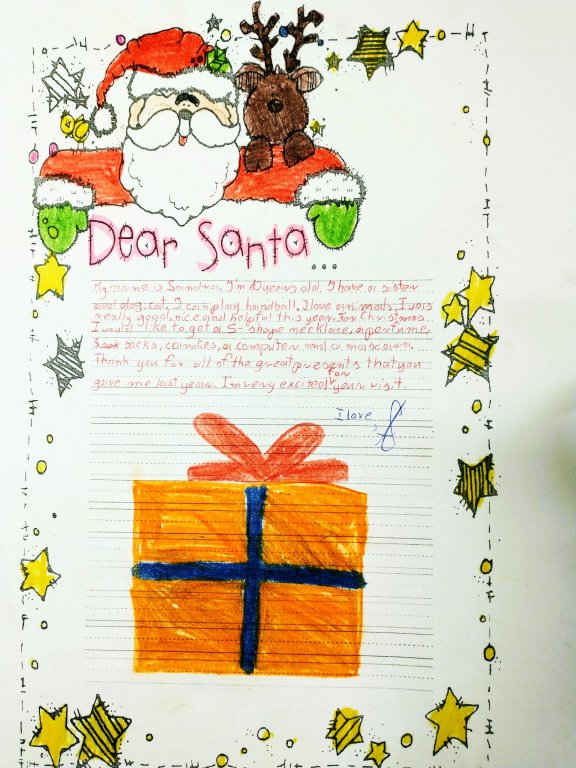 Dear Santa...
My name is Saindra. I'm 10 years old. I have a sister
and dog, cat. I can play handball. I love animals. I was
really good, nice and helpful this year. For Christmas
I would like to get a S-shape necklace, a perfume,
socks, candles, a computer and a mascara.
Thank you for all of the great presents that you
gave me last year. I'm very excited for your visit.
I love,